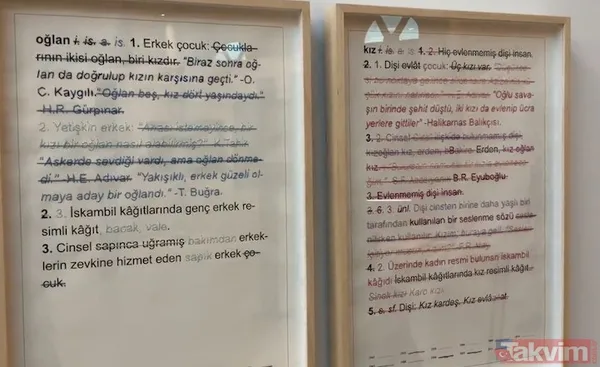 oğlan i. is. a is. 1. Erkek çocuk: Çocukla-
rının ikisi oğlan, biri kızdır. "Biraz sonra oğ-
lan da doğrulup kızın karşısına geçti."-O.
C. Kaygılı. "Oğlan beş, kız dört yaşındaydı."
-H.R. Gürpınar.
2. Yetişkin erkek: "Anası istemeyince, bir
kızı bir oğlan nasıl alabilirmiş?" K.Tahir
"Askerde sevdiği vardı, ama oğlan dönme-
di." -H.E. Adıvar "Yakışıklı, erkek güzeli ol-
maya aday bir oğlandı." -T. Buğra.
2. 3. İskambil kâğıtlarında genç erkek re-
simli kâğıt, bacak, vale.
3. Cinsel sapınca uğramış bakımdan erkek-
lerin zevkine hizmet eden sapık erkek ço-
cuk.
kız i. is. a is 1. 2. Hiç evlenmemiş dişi insan.
2. 1. Dişi evlât çocuk: Üç kızı var.
Adıvar "Oğlu sava-
şın birinde şehit düştü, iki kızı da evlenip ücra
yerlere gittiler" -Halikarnas Balıkçısı.
3. 2. Cinsel ilişkide bulunmamış dişi
kızoğlan kız, erden, Bakire. Erden, kız oğlan
kız.
B.R. Eyuboğlu-
3. Evlenmemiş dişi insan.
3. 6. 3. ünl. Dişi cinsten birine daha yaşlı biri
tarafından kullanılan bir seslenme sözü
kullanılır. Kızım, buraya gel!
4. 2. Üzerinde kadın resmi bulunan iskambil
kâğıdı İskambil kâğıtlarında kız resimli kâğıt.
Sinek kızı Karo kızı.
5. s. sf. Dişi: Kız kardeş. Kız evlâ
Takvim